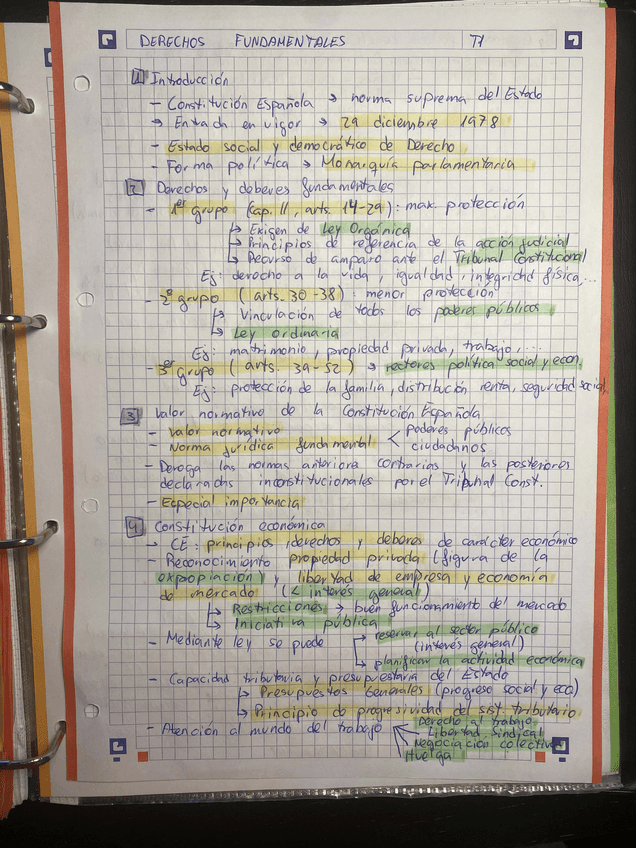 DERECHOS FUNDAMENTALES T1
1 Introducción
- Constitución Española → norma suprema del Estado
→ Entrada en vigor → 29 diciembre 1978
- Estado social y democrático de Derecho
- Forma política → Monarquía parlamentaria
2 Derechos y deberes fundamentales
- 1er grupo (cap. II, arts. 14-29): max. protección
↳ Exigen de Ley Orgánica
↳ Principios de referencia de la acción judicial
↳ Recurso de amparo ante el Tribunal Constitucional
Ej: derecho a la vida, igualdad, integridad física,...
- 2º grupo (arts. 30-38): menor protección
↳ Vinculación de todos los poderes públicos
↳ Ley ordinaria
Ej: matrimonio, propiedad privada, trabajo,...
- 3er grupo (arts. 39-52) → rectores política social y econ.
Ej: protección de la familia, distribución renta, seguridad social,
3 Valor normativo de la Constitución Española
- Valor normativo
- Norma jurídica fundamental < poderes públicos
ciudadanos
- Deroga las normas anteriores contrarias y las posteriores
declaradas inconstitucionales por el Tribunal Const.
- Especial importancia
4 Constitución económica
- CE: principios, derechos y deberes de carácter económico
- Reconocimiento propiedad privada (figura de la
expropiación) y libertad de empresa y economía
de mercado (< interés general)
↳ Restricciones → buen funcionamiento del mercado
↳ Iniciativa pública
- Mediante ley se puede → reservar al sector público
(interés general)
↳ planificar la actividad económica
- Capacidad tributaria y presupuestaria del Estado
↳ Presupuestos Generales (progreso social y eco)
↳ Principio de progresividad del sist. tributario
- Atención al mundo del trabajo Derecho al trabajo
Libertad sindical
Negociación colectiva
Huelga